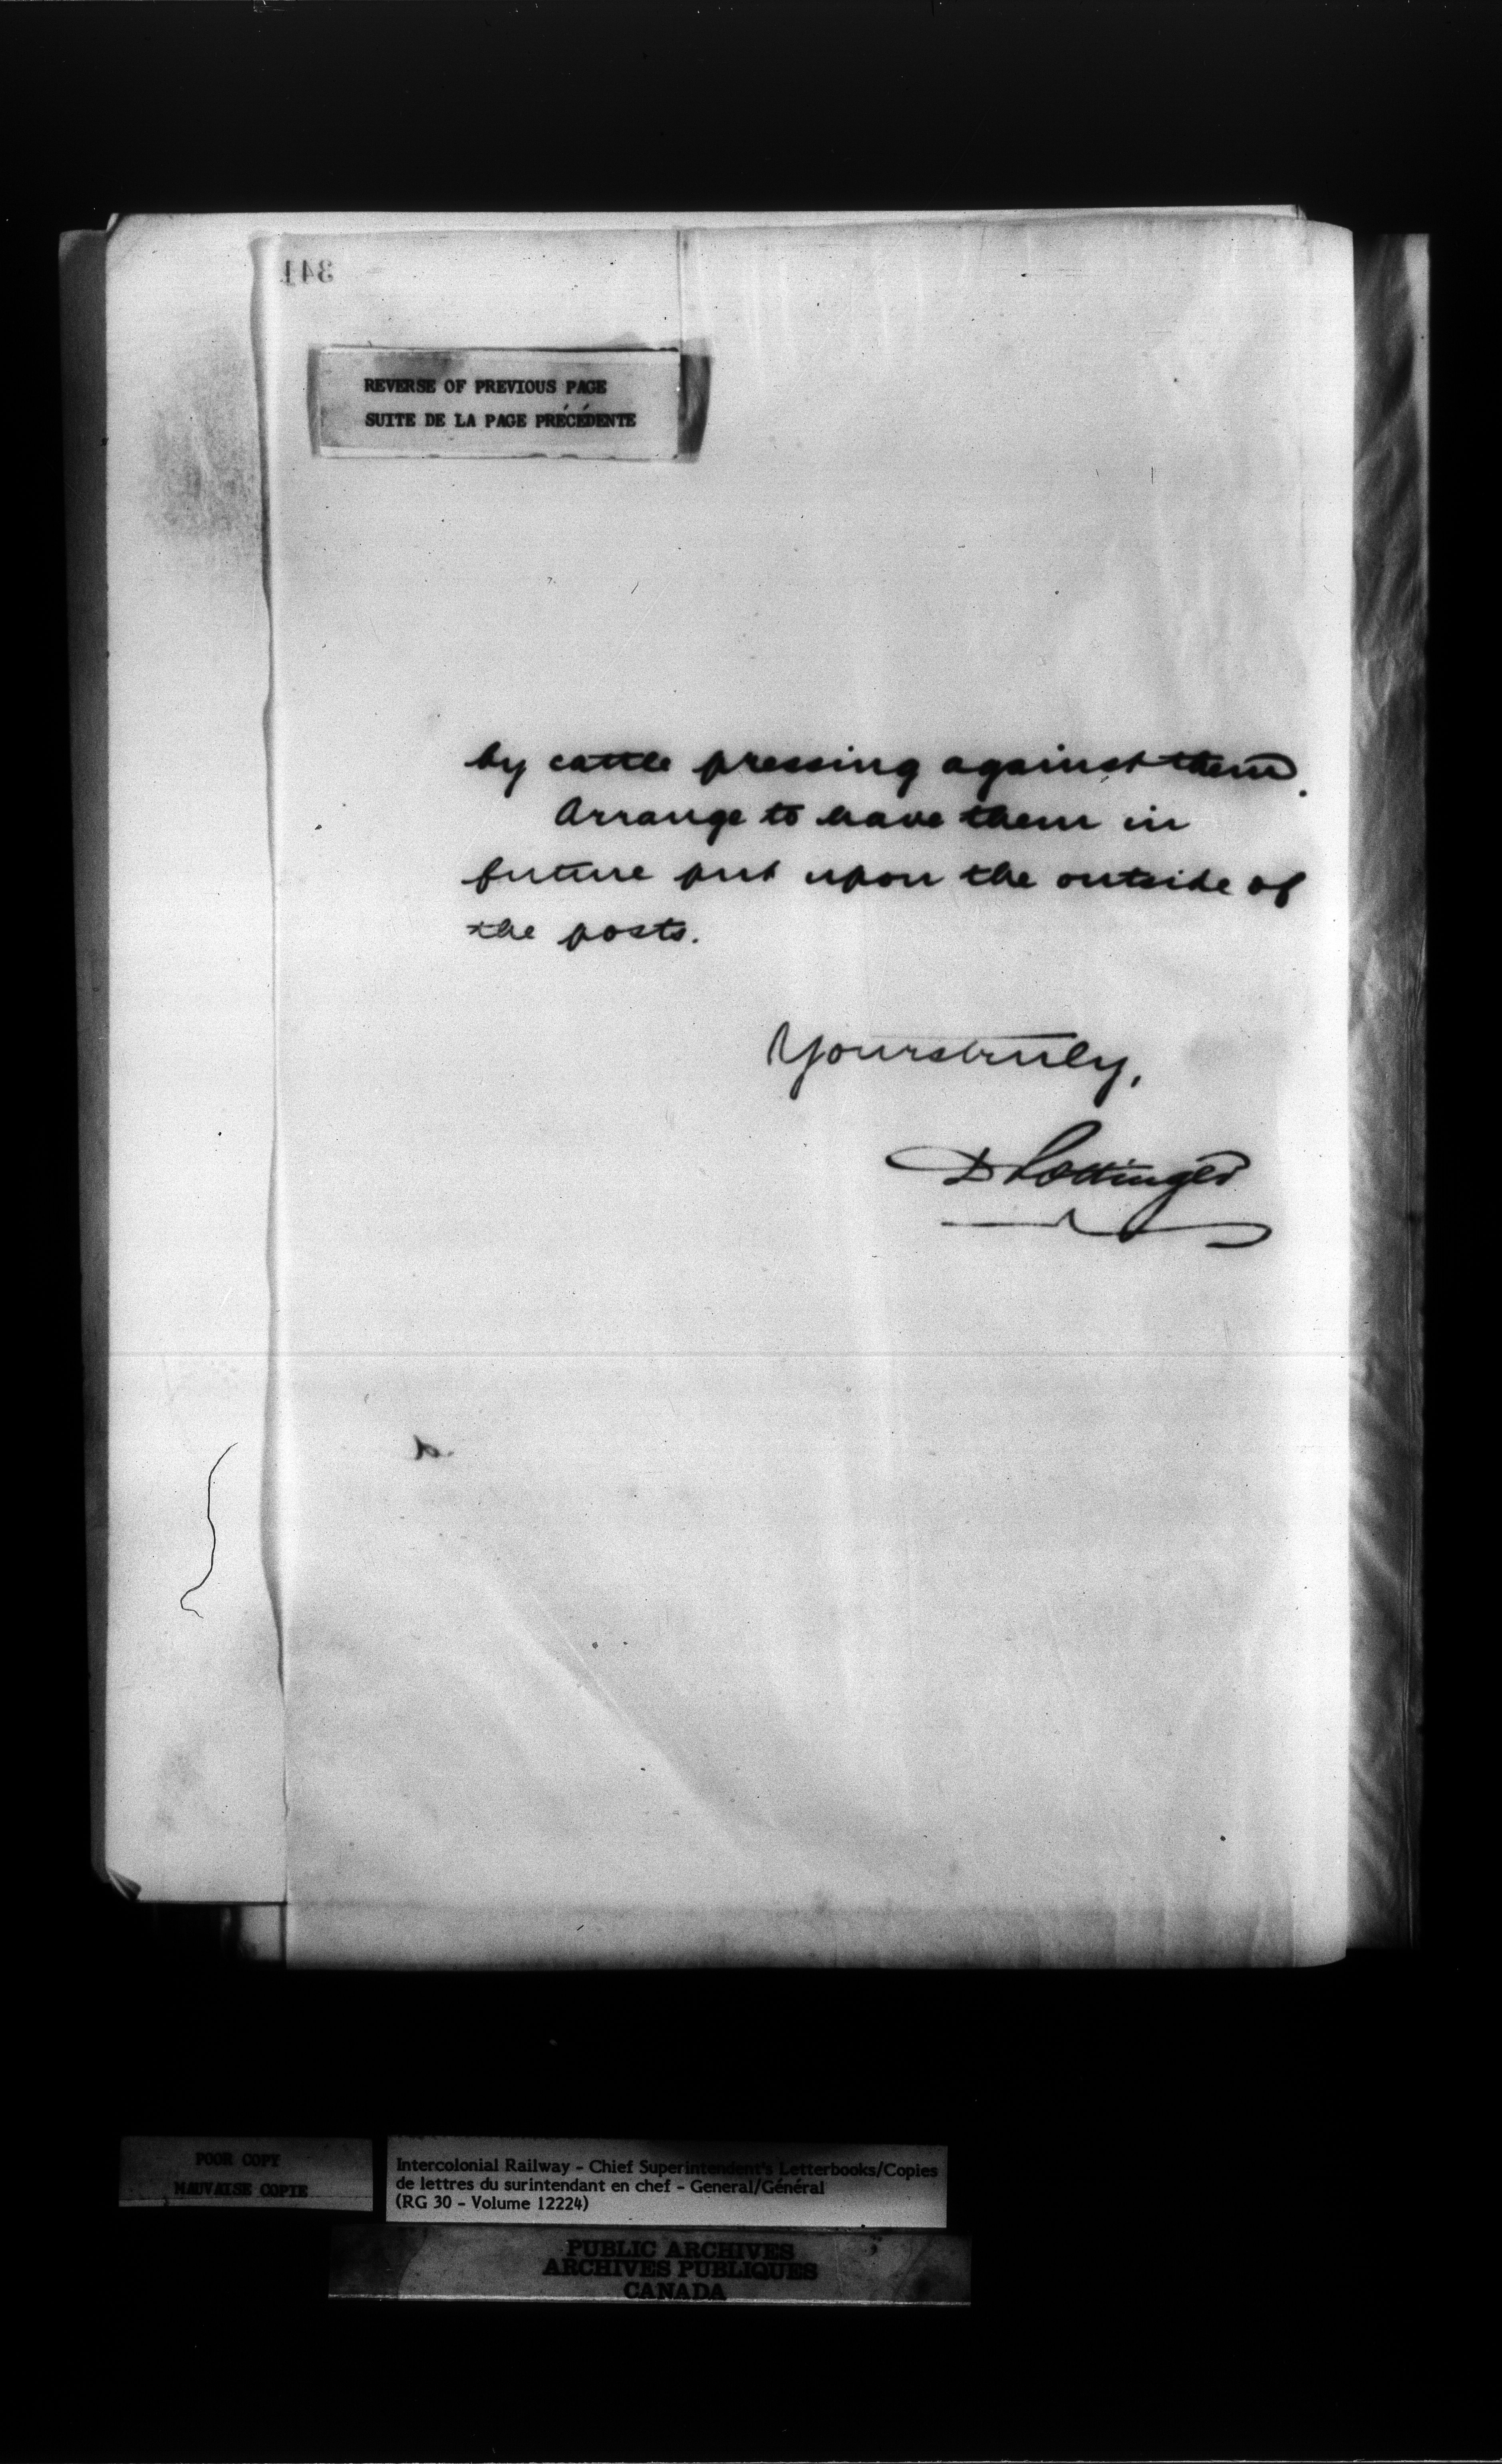 341
REVERSE OF PREVIOUS PAGE
SUITE DE LA PAGE PRÉCÉDENTE
by cattle pressing against them.
Arrange to have them in
future put upon the outside of
the posts.
Yours truly,
D Pottinger
POOR COPY
MAUVAISE COPIE
Intercolonial Railway - Chief Superintendent's Letterbooks/Copies
de lettres du surintendant en chef - General/Général
(RG 30 - Volume 12224)
PUBLIC ARCHIVES
ARCHIVES PUBLIQUES
CANADA